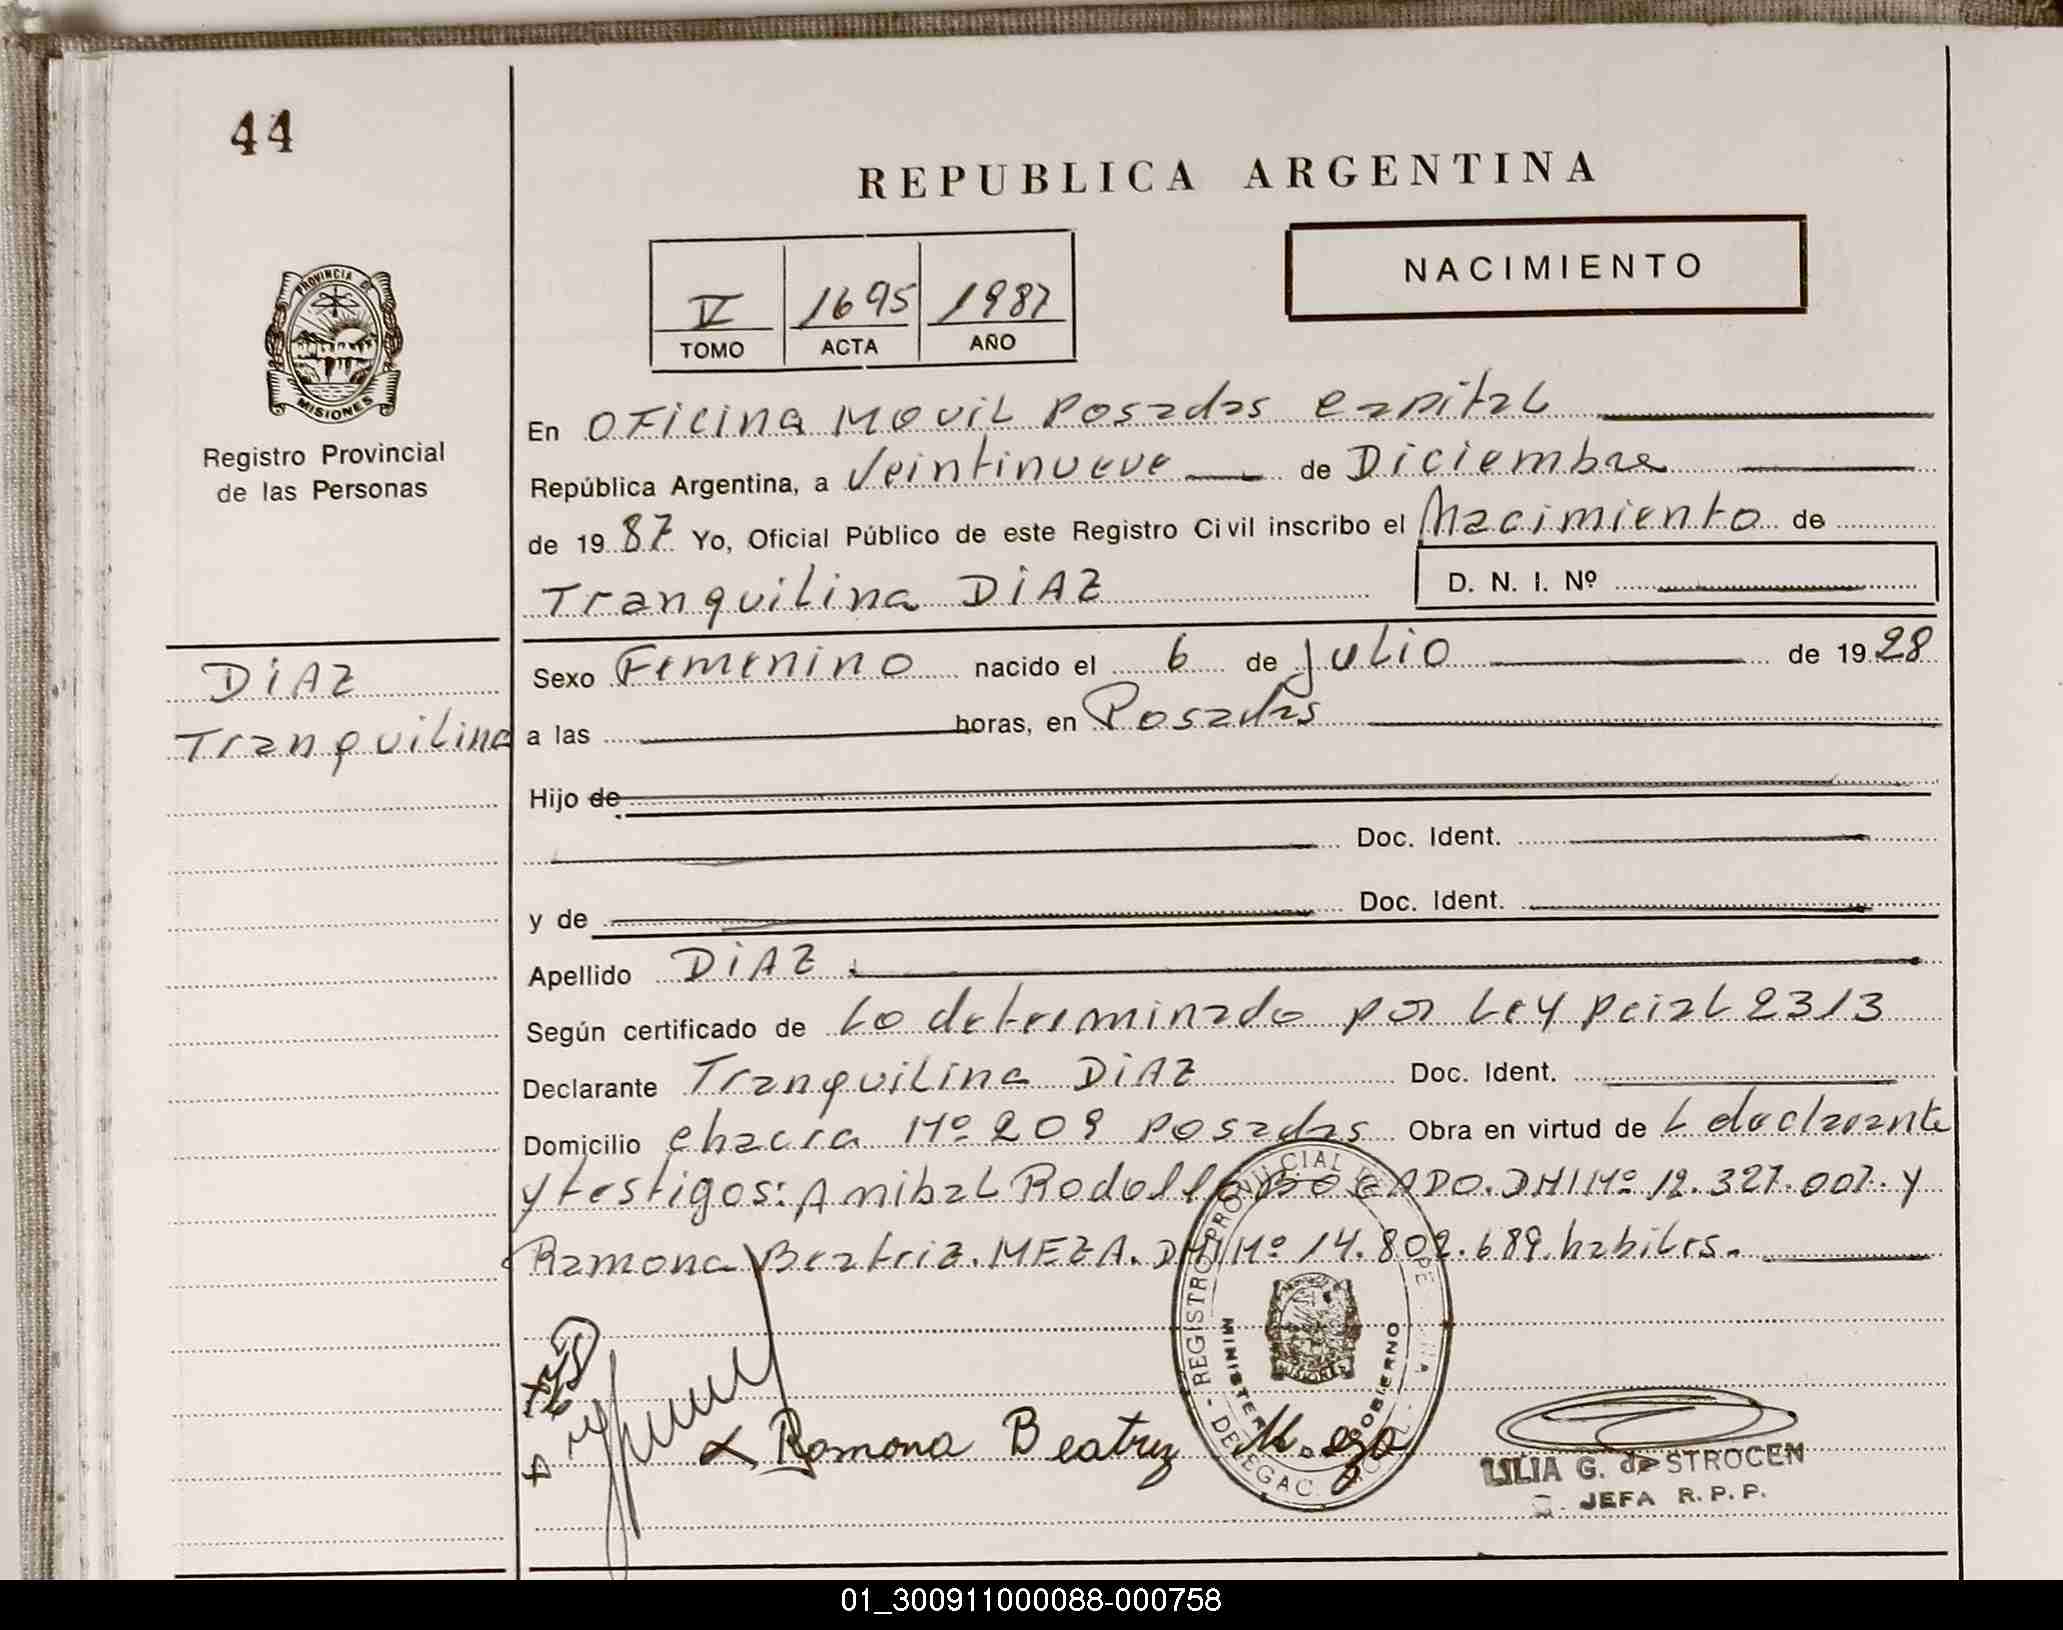 44
REPUBLICA ARGENTINA
NACIMIENTO
V 1695 1987
TOMO ACTA AÑO
PROVINCIA DE
MISIONES
Registro Provincial
de las Personas
En OFicina Movil Posadas capital
República Argentina, a Veintinueve de Diciembre
de 1987 Yo, Oficial Público de este Registro Civil inscribo el Nacimiento de
Tranquilina DIAZ D. N. I. Nº
DIAZ
Tranquilina
Sexo Femenino nacido el 6 de Julio de 1928
a las horas, en Posadas
Hijo de
Doc. Ident.
y de Doc. Ident.
Apellido DIAZ.
Según certificado de Lo determinado por Ley Pcial 2313
Declarante Tranquilina DIAZ Doc. Ident.
Domicilio chacra Nº 209 Posadas Obra en virtud de L declarante
y testigos: Anibal Rodolfo BOGADO. DNI Nº 12.327.007. y
Ramona Beatriz. MEZA. DNI Nº 14.802.689. habiles.
REGISTRO PROVINCIAL DE
MINISTER GOBIERNO
DELEGAC
MISIONES
Ramona Beatriz Meza
LILIA G. de STROCEN
JEFA R.P.P.
01_300911000088-000758